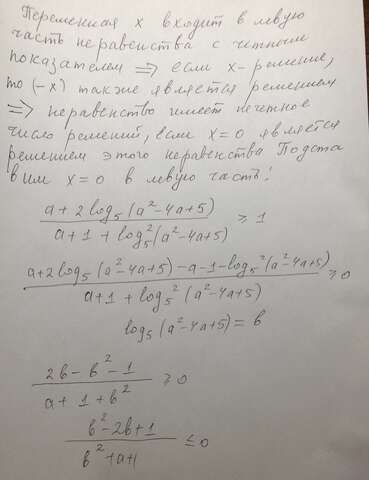 Переменная x входит в левую
часть неравенства с четным
показателем ⇒ если x - решение,
то (-x) также является решением
⇒ неравенство имеет нечетное
число решений, если x=0 является
решением этого неравенства Подста
вим x=0 в левую часть!
(a + 2 log₅(a²-4a+5)) / (a + 1 + log₅²(a²-4a+5)) ≥ 1
(a+2log₅(a²-4a+5)-a-1-log₅²(a²-4a+5)) / (a+1+log₅²(a²-4a+5)) ≥ 0
log₅(a²-4a+5) = b
(2b - b² - 1) / (a + 1 + b²) ≥ 0
(b² - 2b + 1) / (b² + a + 1) ≤ 0